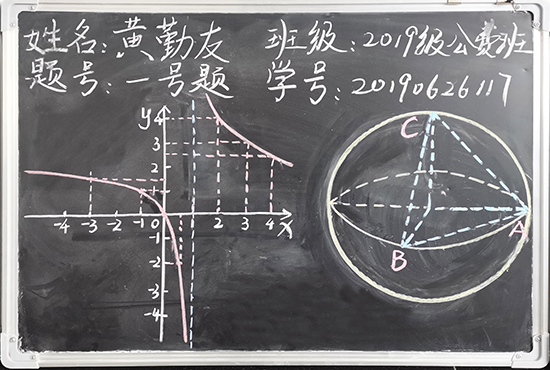 姓名:黄勤友 班级:2019级公费班
题号:一号题 学号:20190626117
y
4
3
2
1
-4 -3 -2 -1 0 2 3 4 x
-1
-2
-3
-4
C
A
B